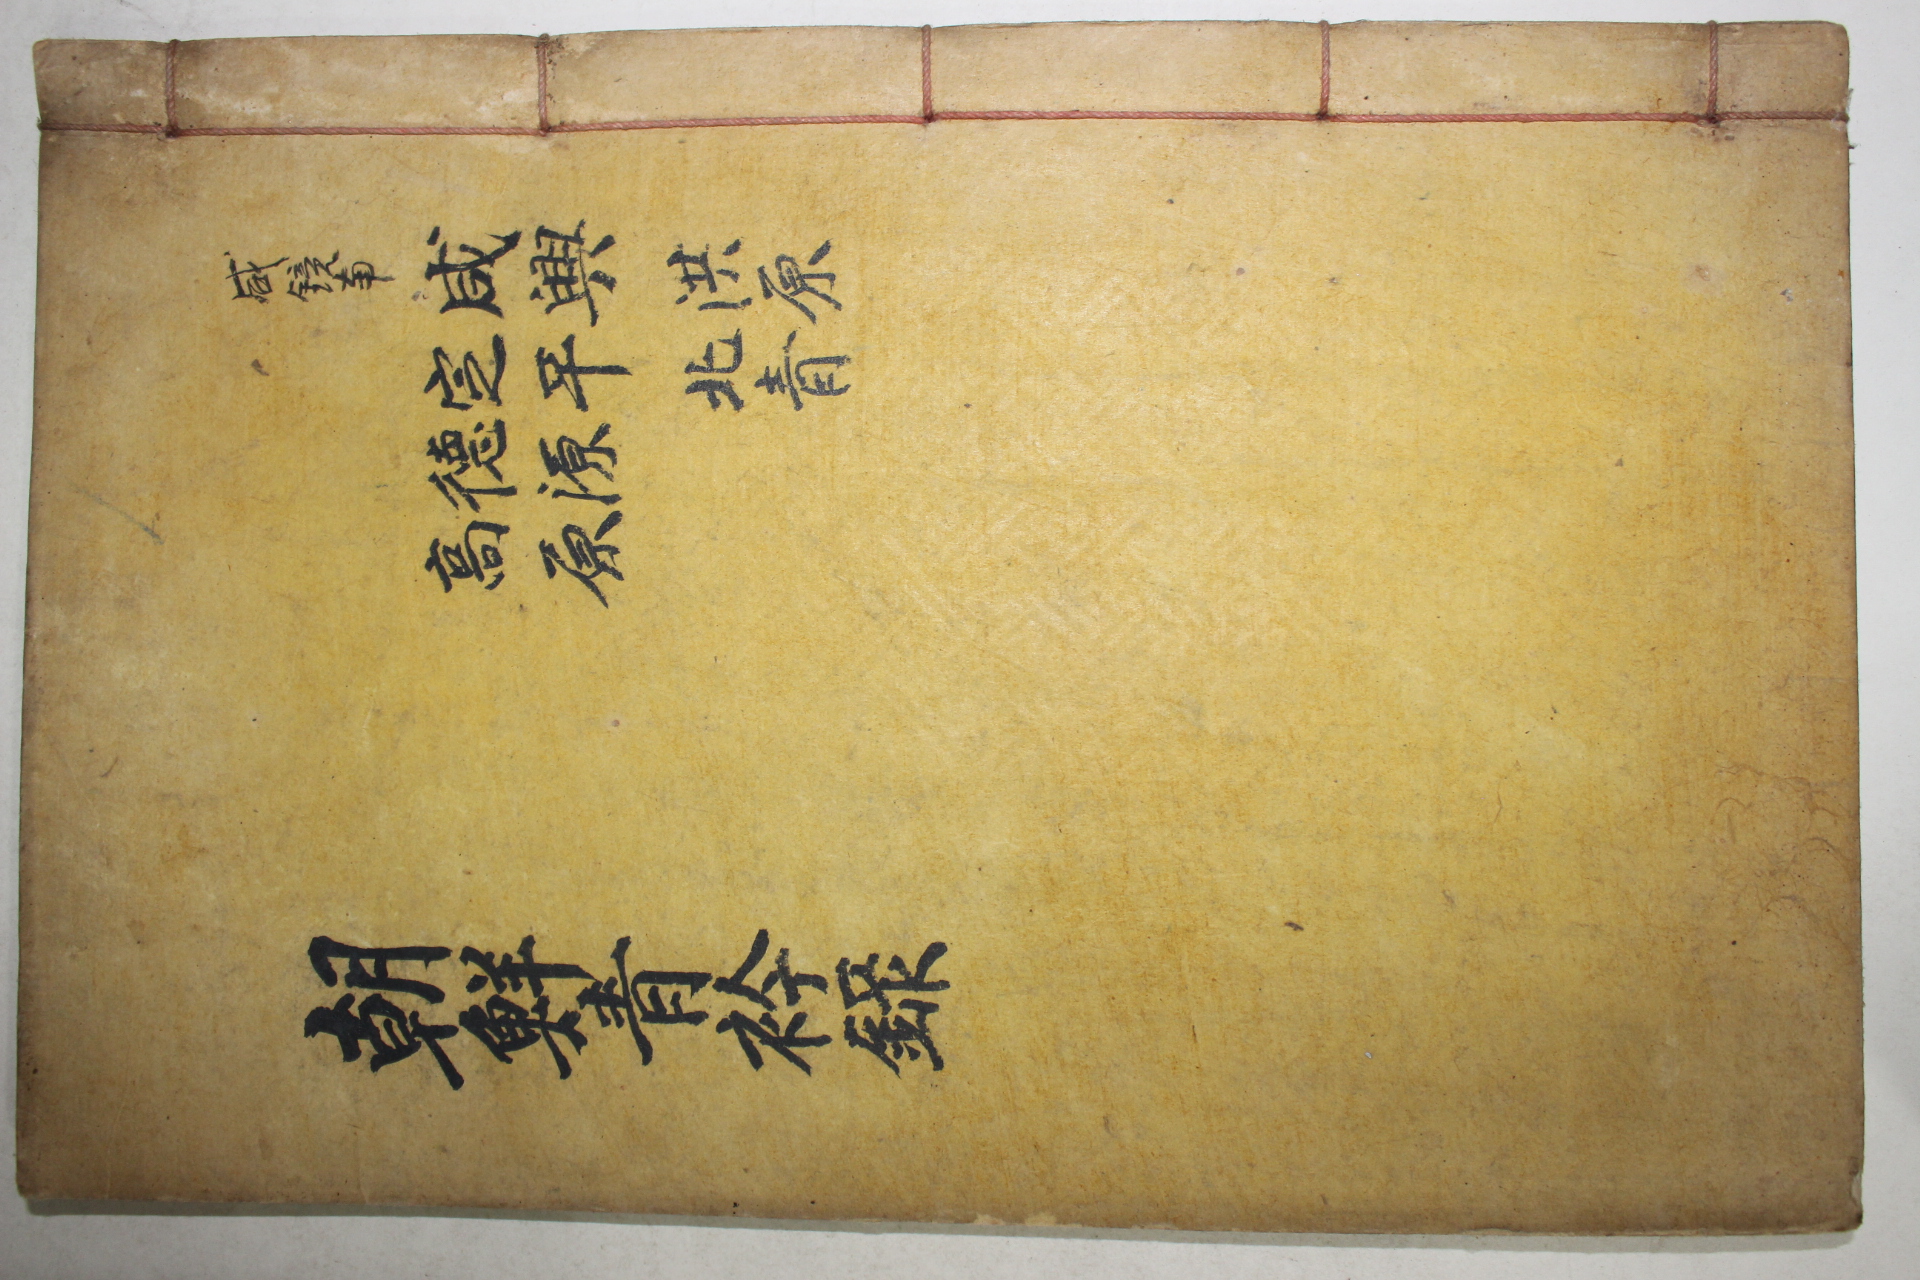 咸鏡南
咸興 洪原
定平 北青
德源
高原
朝鮮青衿錄